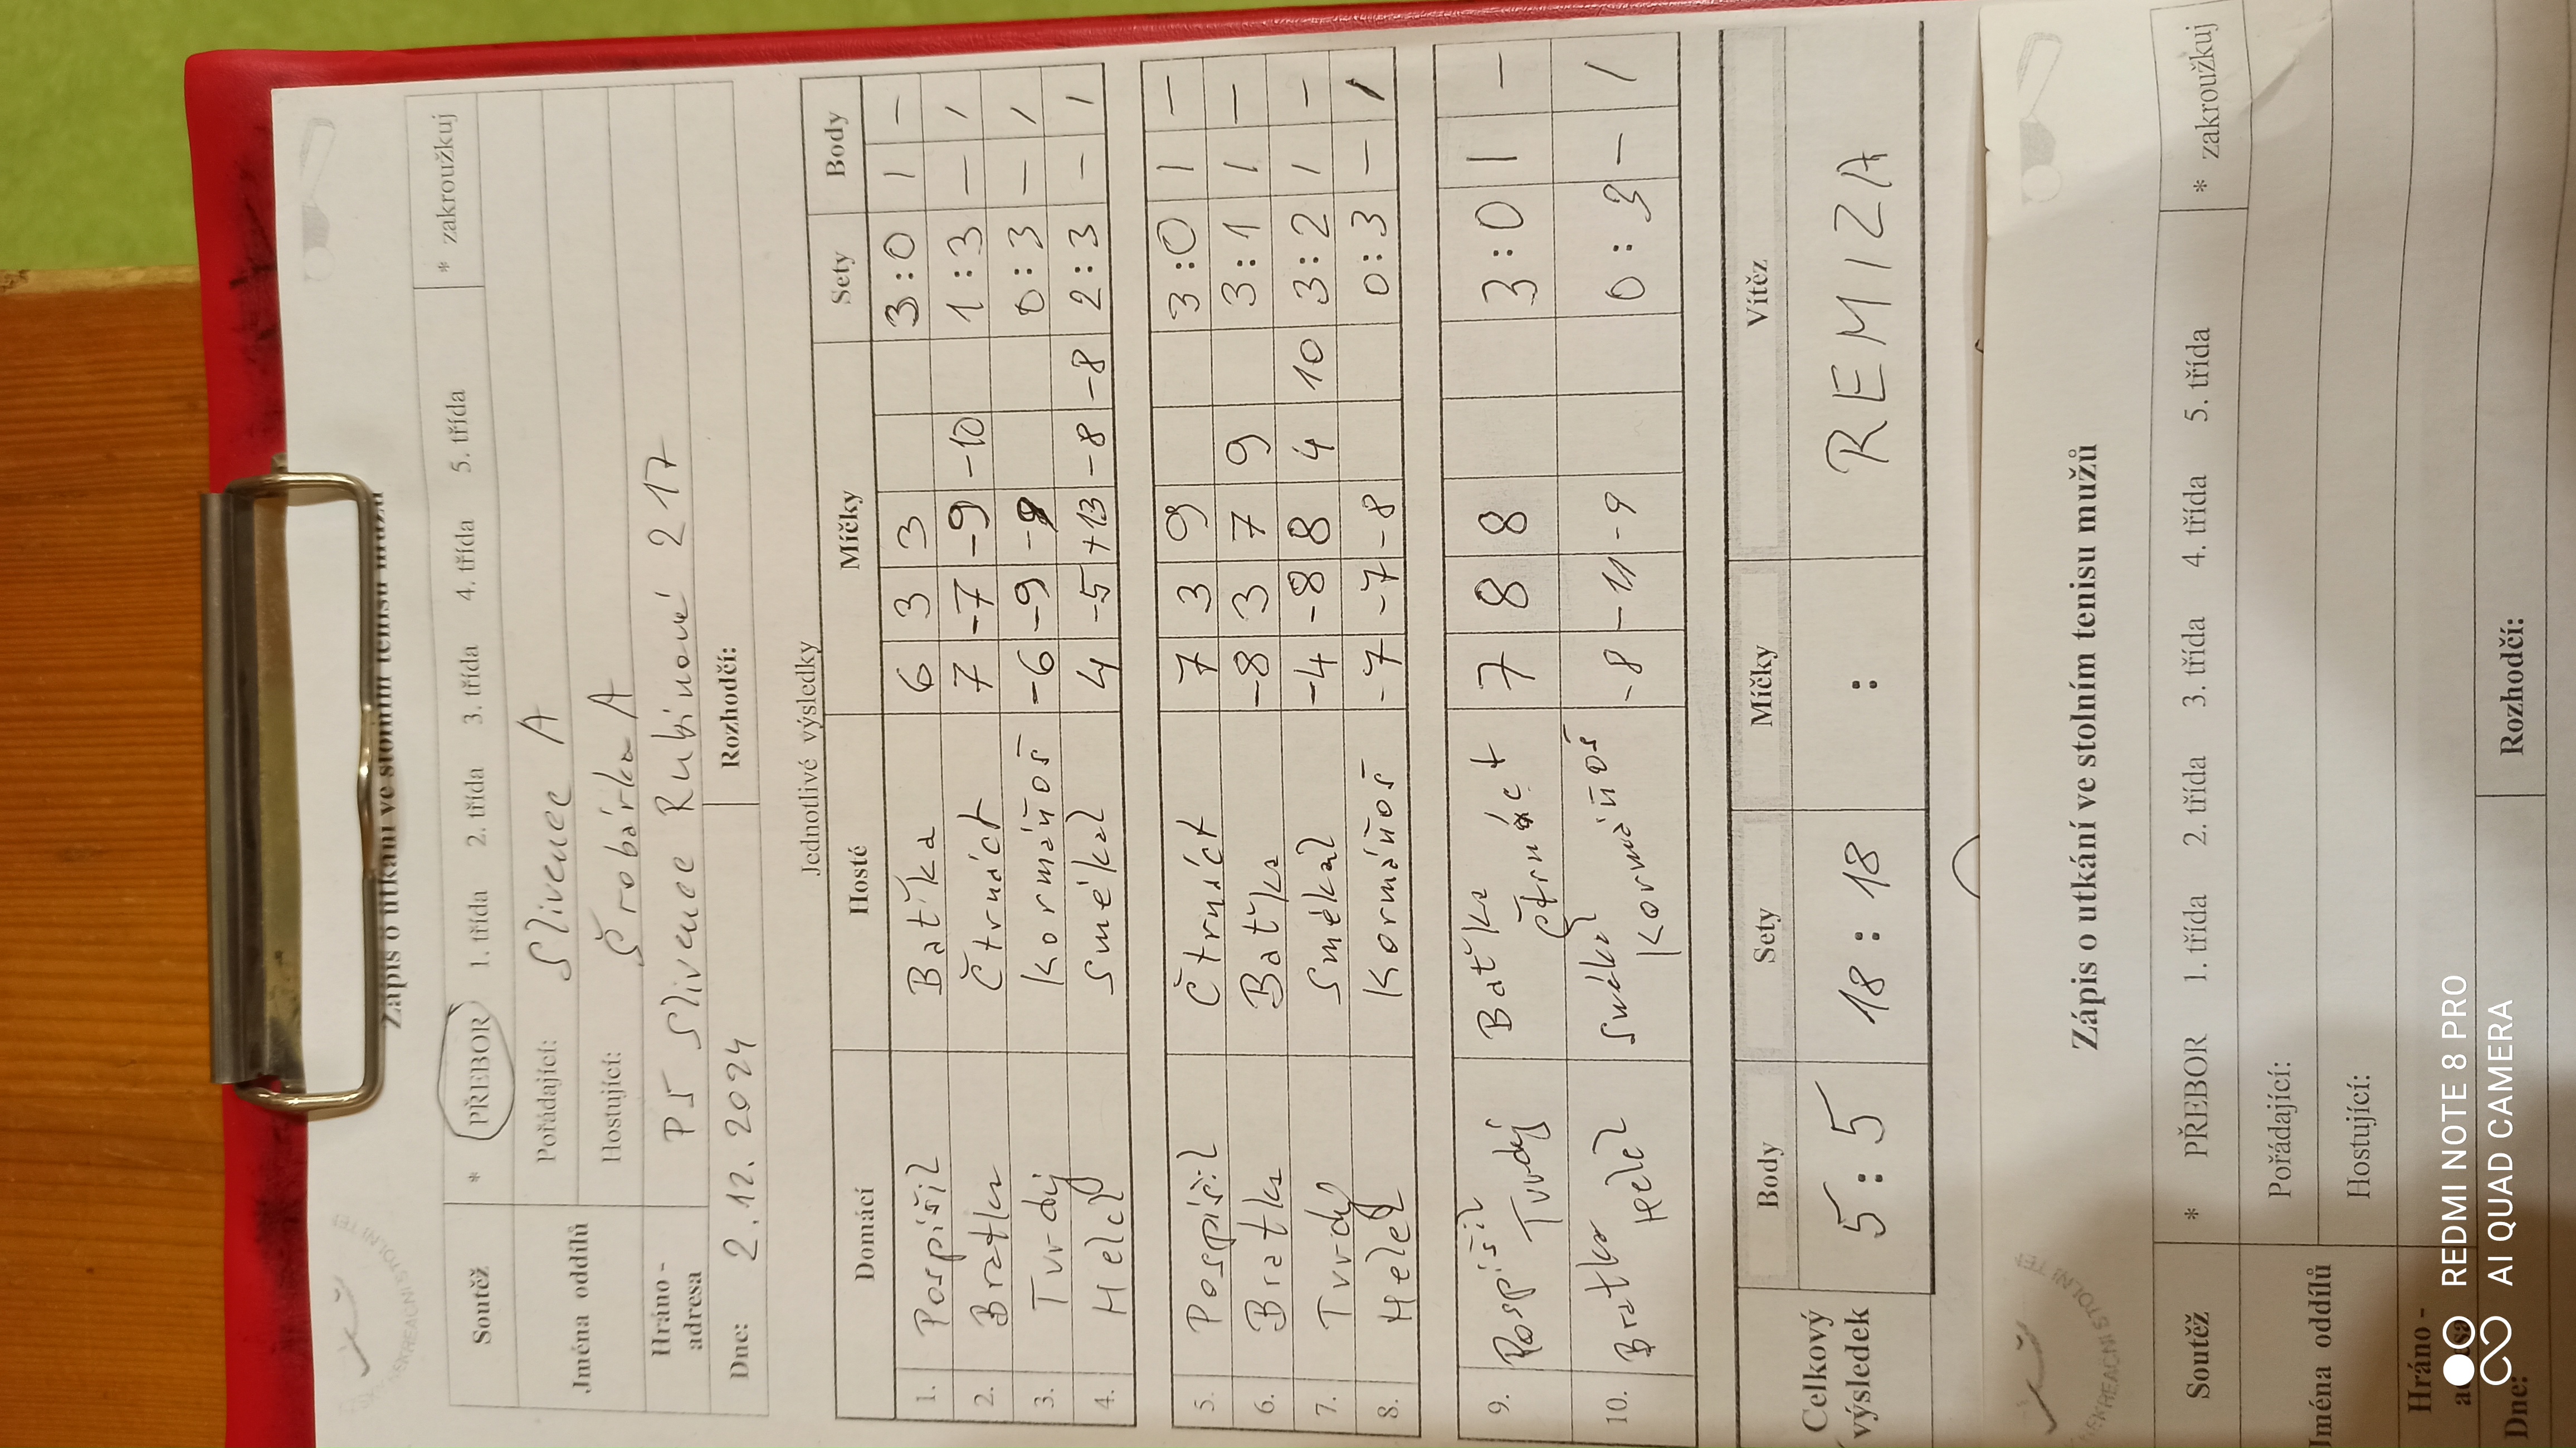 Zápis o utkání ve stolním tenisu mužů
Soutěž * PŘEBOR 1. třída 2. třída 3. třída 4. třída 5. třída * zakroužkuj
Jména oddílů Pořádající: Slivenec A
Hostující: Šrobárka A
Hráno - adresa P5 Slivenec Rubínová 217
Dne: 2.12.2024 Rozhodčí:
Jednotlivé výsledky
Domácí Hosté Míčky Sety Body
1. Pospíšil Baťka 6 3 3 3:0 1 –
2. Bratka Čtrnáct 7 -7 -9 -10 1:3 – 1
3. Tvrdý Kormáňoš -6 -9 -9 0:3 – 1
4. Helel Smékal 4 -5 +13 -8 -8 2:3 – 1
5. Pospíšil Čtrnáct 7 3 9 3:0 1 –
6. Bratka Baťka -8 3 7 9 3:1 1 –
7. Tvrdý Smékal -4 -8 8 4 10 3:2 1 –
8. Helel Kormáňoš -7 -7 -8 0:3 – 1
9. Pospíšil Tvrdý Baťka Čtrnáct 7 8 8 3:0 1 –
10. Bratka Helel Smékal Kormáňoš -8 -11 -9 0:3 – 1
Celkový výsledek Body Sety Míčky Vítěz
5:5 18:18 : REMIZA
Zápis o utkání ve stolním tenisu mužů
Soutěž * PŘEBOR 1. třída 2. třída 3. třída 4. třída 5. třída * zakroužkuj
Jména oddílů Pořádající:
Hostující:
Hráno -
Dne: Rozhodčí:
REDMI NOTE 8 PRO
AI QUAD CAMERA